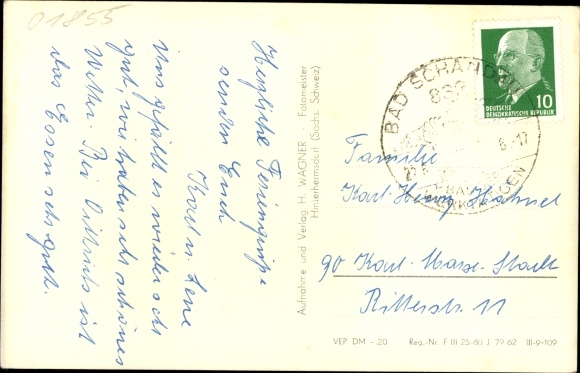 01855
Herzliche Feriengrüße
senden Euch
Karl u. Lene
Uns gefällt es wieder sehr
gut, wir haben sehr schönes
Wetter. Bei Dittrichs ist
das Essen sehr gut.
Aufnahme und Verlag H. WAGNER - Fotomeister
Hinterhermsdorf (Sächs. Schweiz)
DEUTSCHE
DEMOKRATISCHE REPUBLIK
10
BAD SCHANDAU
6.-17
Familie
Karl-Heinz Hähnel
90 Karl-Marx-Stadt
Ritterstr. 11
VEP DM -.20 Reg.-Nr. F III-25-60 J 79 62 III-9-109